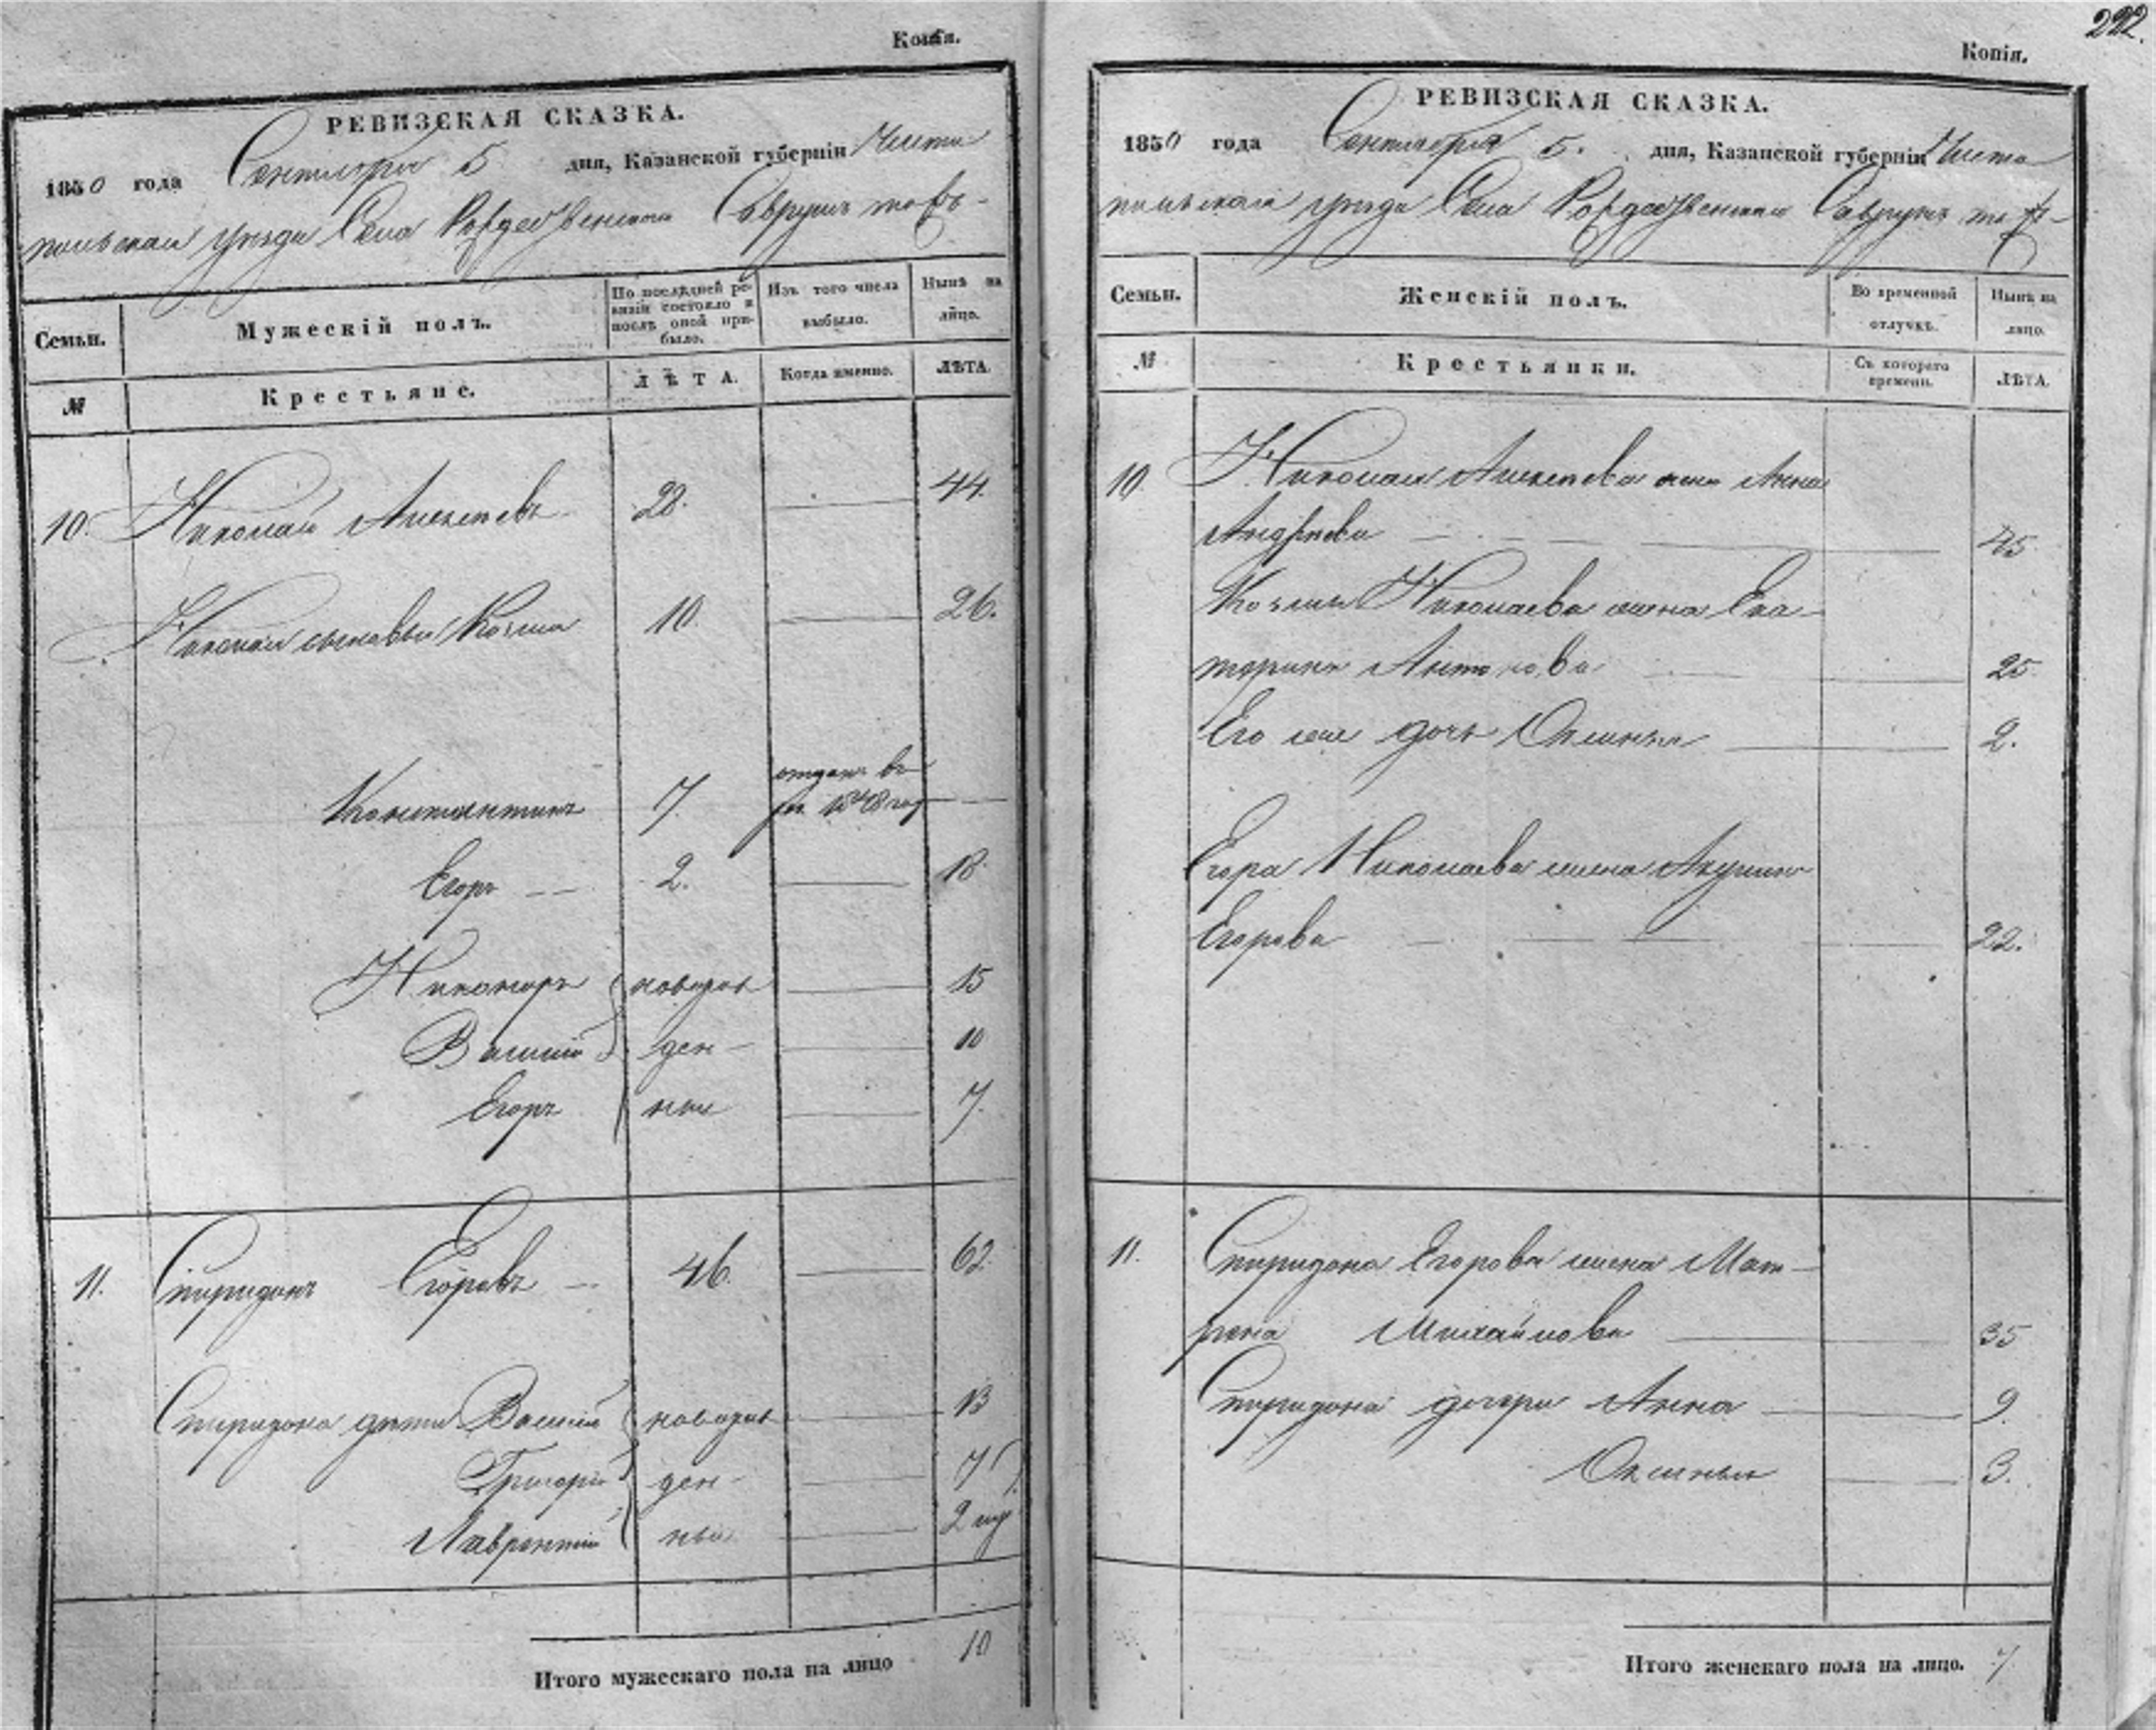 Копія.
РЕВИЗСКАЯ СКАЗКА.
1850 года Сентября 5 дня, Казанской губерніи Чисто
польскаго уѣзда Села Рождественскаго
Семьи. Мужескій полъ.
По послѣдней ре-
визіи состояло и
послѣ оной при-
было.
Изъ того числа
выбыло.
Нынѣ на
лицо.
№ Крестьяне. ЛѢТА. Когда именно. ЛѢТА.
10. Николай Алексѣевъ 28. 44.
Николая сыновья Козма 10. 26.
Константинъ 7. отданъ въ
1848 год
Егоръ 2. 18.
Никоноръ новорож 15
Василій ден- 10
Егоръ ные 7.
11. Спиридонъ Егоровъ 46. 62.
Спиридона дѣти Василій новорож 13
Григорій ден- 7
Лаврентій ные 2
Итого мужескаго пола на лицо 10
222.
Копія.
РЕВИЗСКАЯ СКАЗКА.
1850 года Сентября 5. дня, Казанской губерніи Чисто
польскаго уѣзда Села Рождественскаго
Семьи. Женскій полъ.
Во временной
отлучкѣ.
Нынѣ на
лицо.
№ Крестьянки.
Съ котораго
времени.
ЛѢТА.
10. Николая Алексѣева жена Анна
Андрѣева 45
Козмы Николаева жена Ека-
терина Антонова 25
Его же дочь Оксинья 2.
Егора Николаева жена Акулина
Егорова 22.
11. Спиридона Егорова жена Мат-
рена Михайлова 35
Спиридона дочери Анна 9.
Оксинья 3.
Итого женскаго пола на лицо. 7